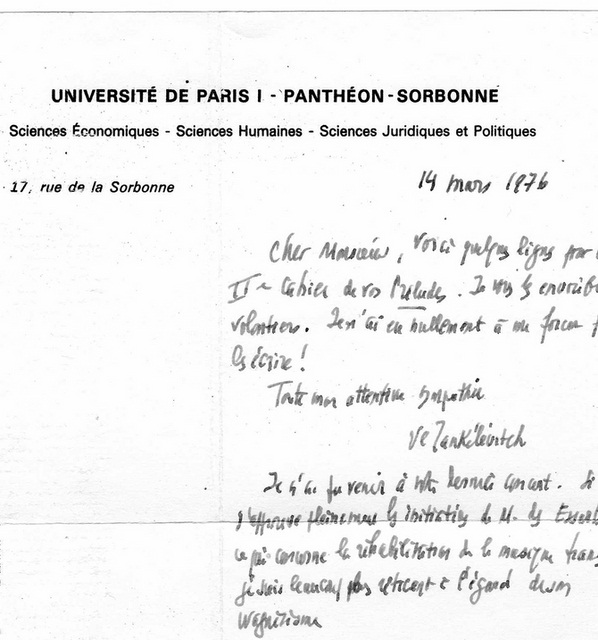 UNIVERSITÉ DE PARIS I - PANTHÉON-SORBONNE
Sciences Économiques - Sciences Humaines - Sciences Juridiques et Politiques
17, rue de la Sorbonne
14 mars 1976
Cher Monsieur, voici quelques lignes pour
IIe Cahier de vos Préludes. Je vous les
volontiers. Je n'ai eu nullement à me forcer
les écrire !
Toute mon attentive sympathie
Vl Jankélévitch
Je n'ai pu venir à votre dernier concert. Si
j'approuve pleinement les initiatives de M. des
ce qui concerne la réhabilitation de la musique
je suis beaucoup plus réticent à l'égard de son
wagnérisme